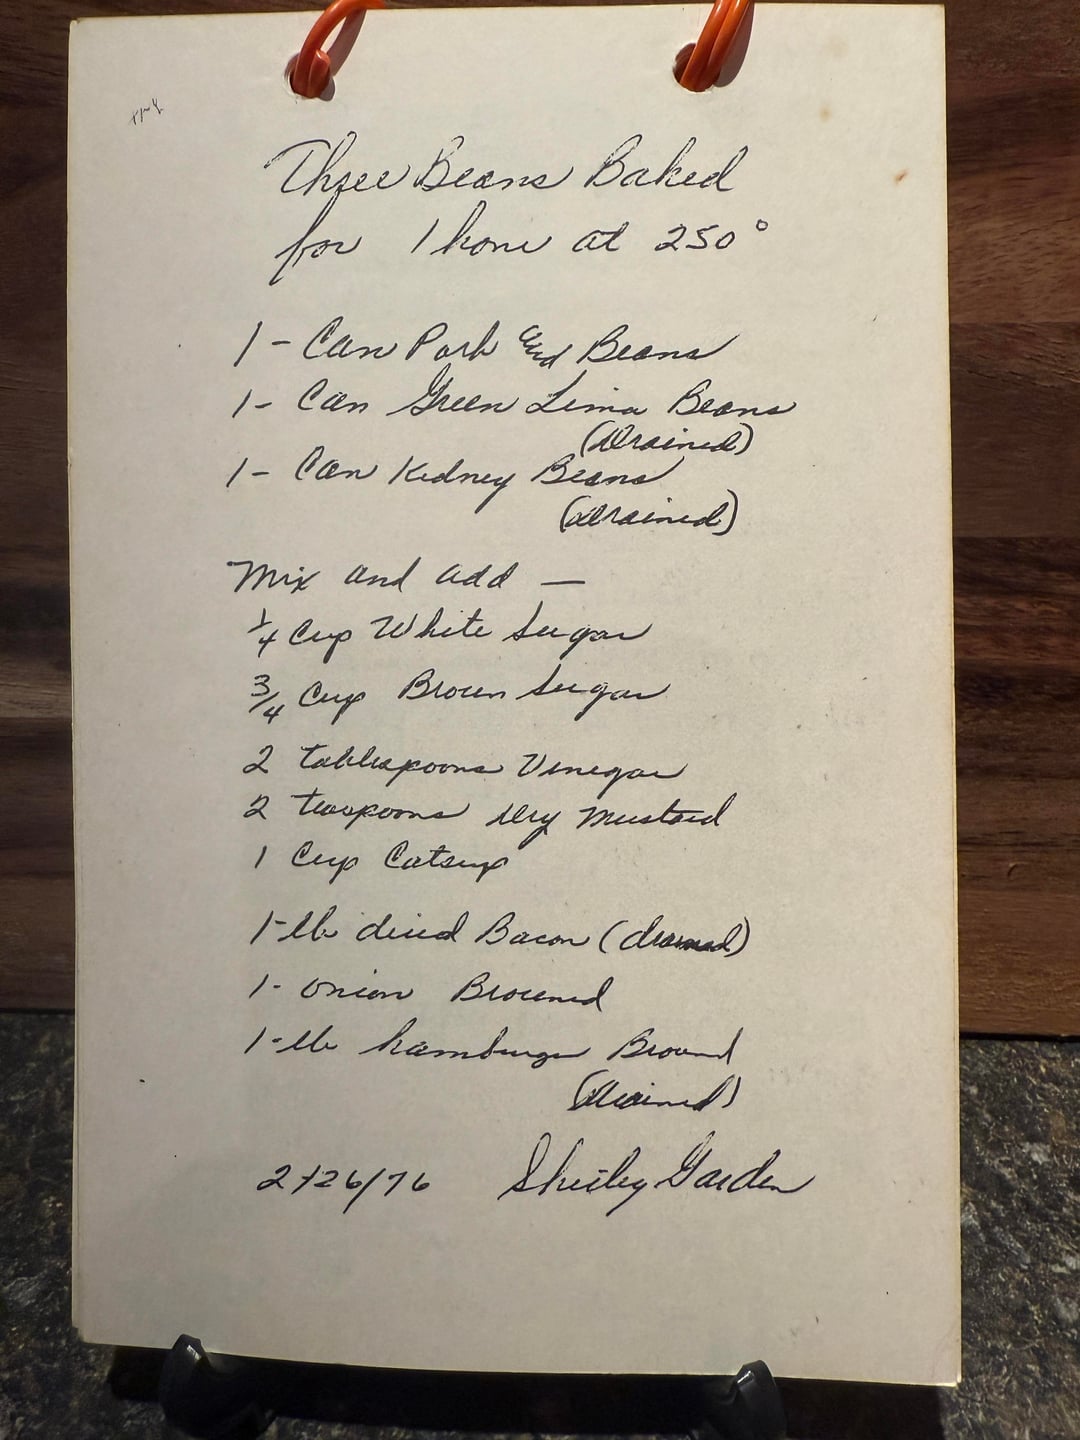 try
Three Beans Baked
for 1 hour at 250°
1 - Can Pork and Beans
1 - Can Green Lima Beans
(Drained)
1 - Can Kidney Beans
(Drained)
Mix and add —
1/4 Cup White Sugar
3/4 Cup Brown Sugar
2 tablespoons Vinegar
2 teaspoons Dry Mustard
1 Cup Catsup
1-lb diced Bacon (drained)
1- Onion Browned
1-lb hamburger Browned
(drained)
2/26/76 Shirley Garden